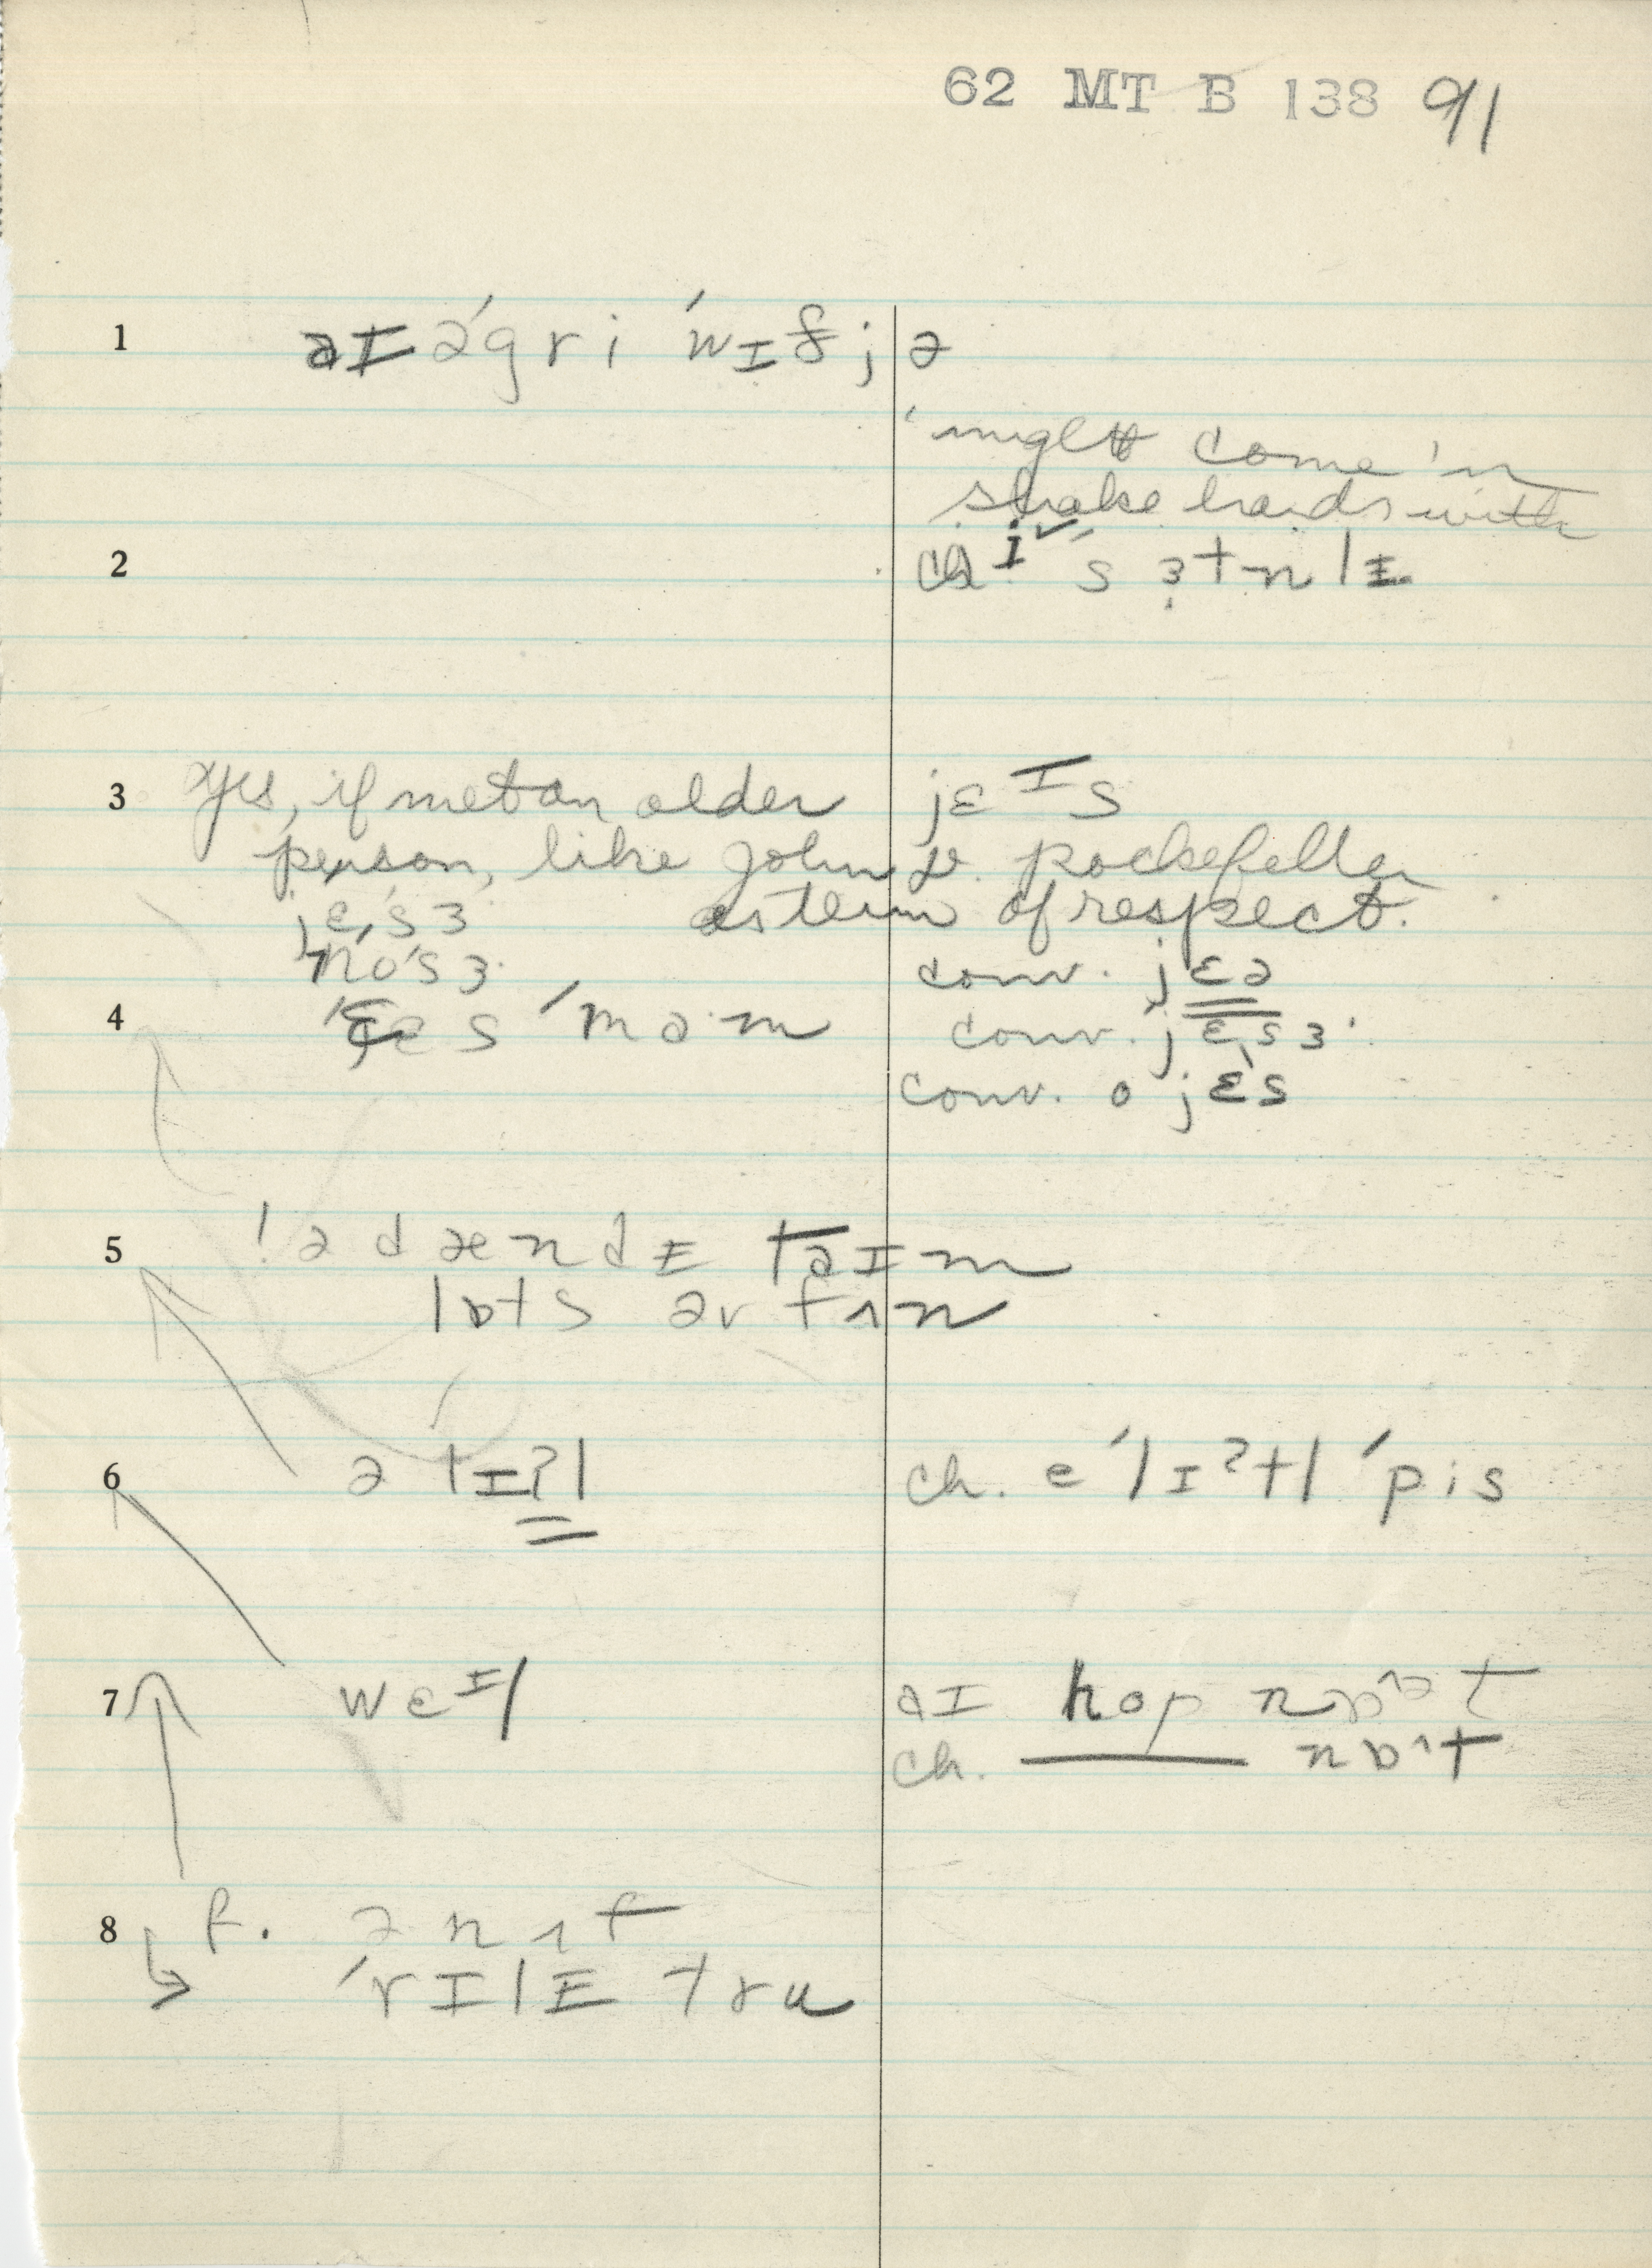 62 MT B 138 91
1 aɪ ə'gri 'wɪð jə
'might come in
shake hands with
2 aɪ 's ɜtnlɪ
3 Yes, if met an older jɛɪs
person, like John D. Rockefeller
jɛ,s'ɜ as term of respect.
no'sɜ conv. jɛə
4 'jɛs 'mam conv. jɛ,sɜ
conv. o jɛs
5 'ə dændɪ taɪm
lɒts əv fʌn
6 ə lɪʔl ch. e 'lɪʔtl 'pis
7 wɛɪl aɪ hop nɒt
ch. nɒʌt
8 f. ənʌf
'rɪlɪ tru